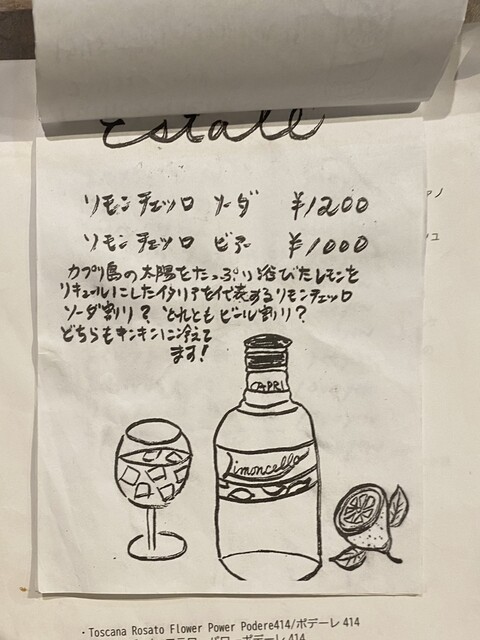 Estate
リモンチェッロ ソーダ ¥1200
リモンチェッロ ビアー ¥1000
カプリ島の太陽をたっぷり浴びたレモンを
リキュールにしたイタリアを代表するリモンチェッロ
ソーダ割り? それともビール割り?
どちらもキンキンに冷えて
ます!
CAPRI
Limoncello
・Toscana Rosato Flower Power Podere414/ポデーレ 414